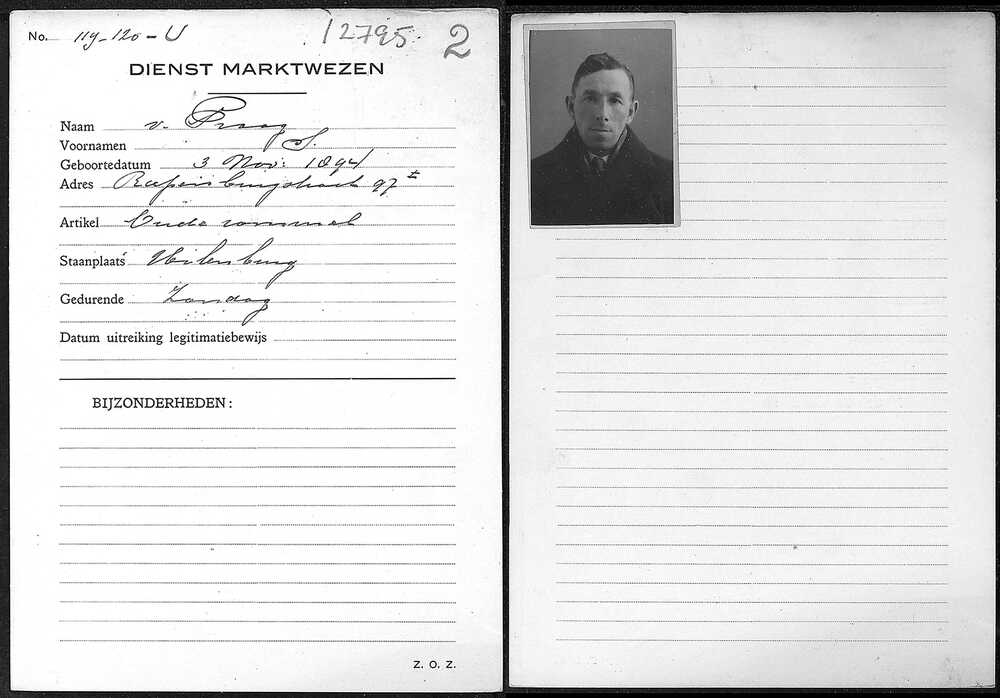 No. 119-120-U 12795. 2
DIENST MARKTWEZEN
Naam v. Praag
Voornamen S.
Geboortedatum 3 Nov: 1894
Adres Rapenburgstraat 97 I
Artikel Oude rommel
Staanplaats Uilenburg
Gedurende Zondag
Datum uitreiking legitimatiebewijs
BIJZONDERHEDEN:
Z. O. Z.